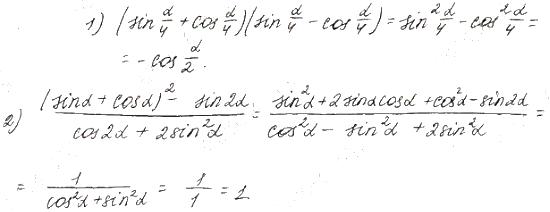 1) (sin α/4 + cos α/4)(sin α/4 - cos α/4) = sin² α/4 - cos² α/4 =
= - cos α/2.
2) ((sinα + cosα)² - sin2α)/(cos2α + 2sin²α) = (sin²α + 2sinαcosα + cos²α - sin2α)/(cos²α - sin²α + 2sin²α) =
= 1/(cos²α + sin²α) = 1/1 = 1